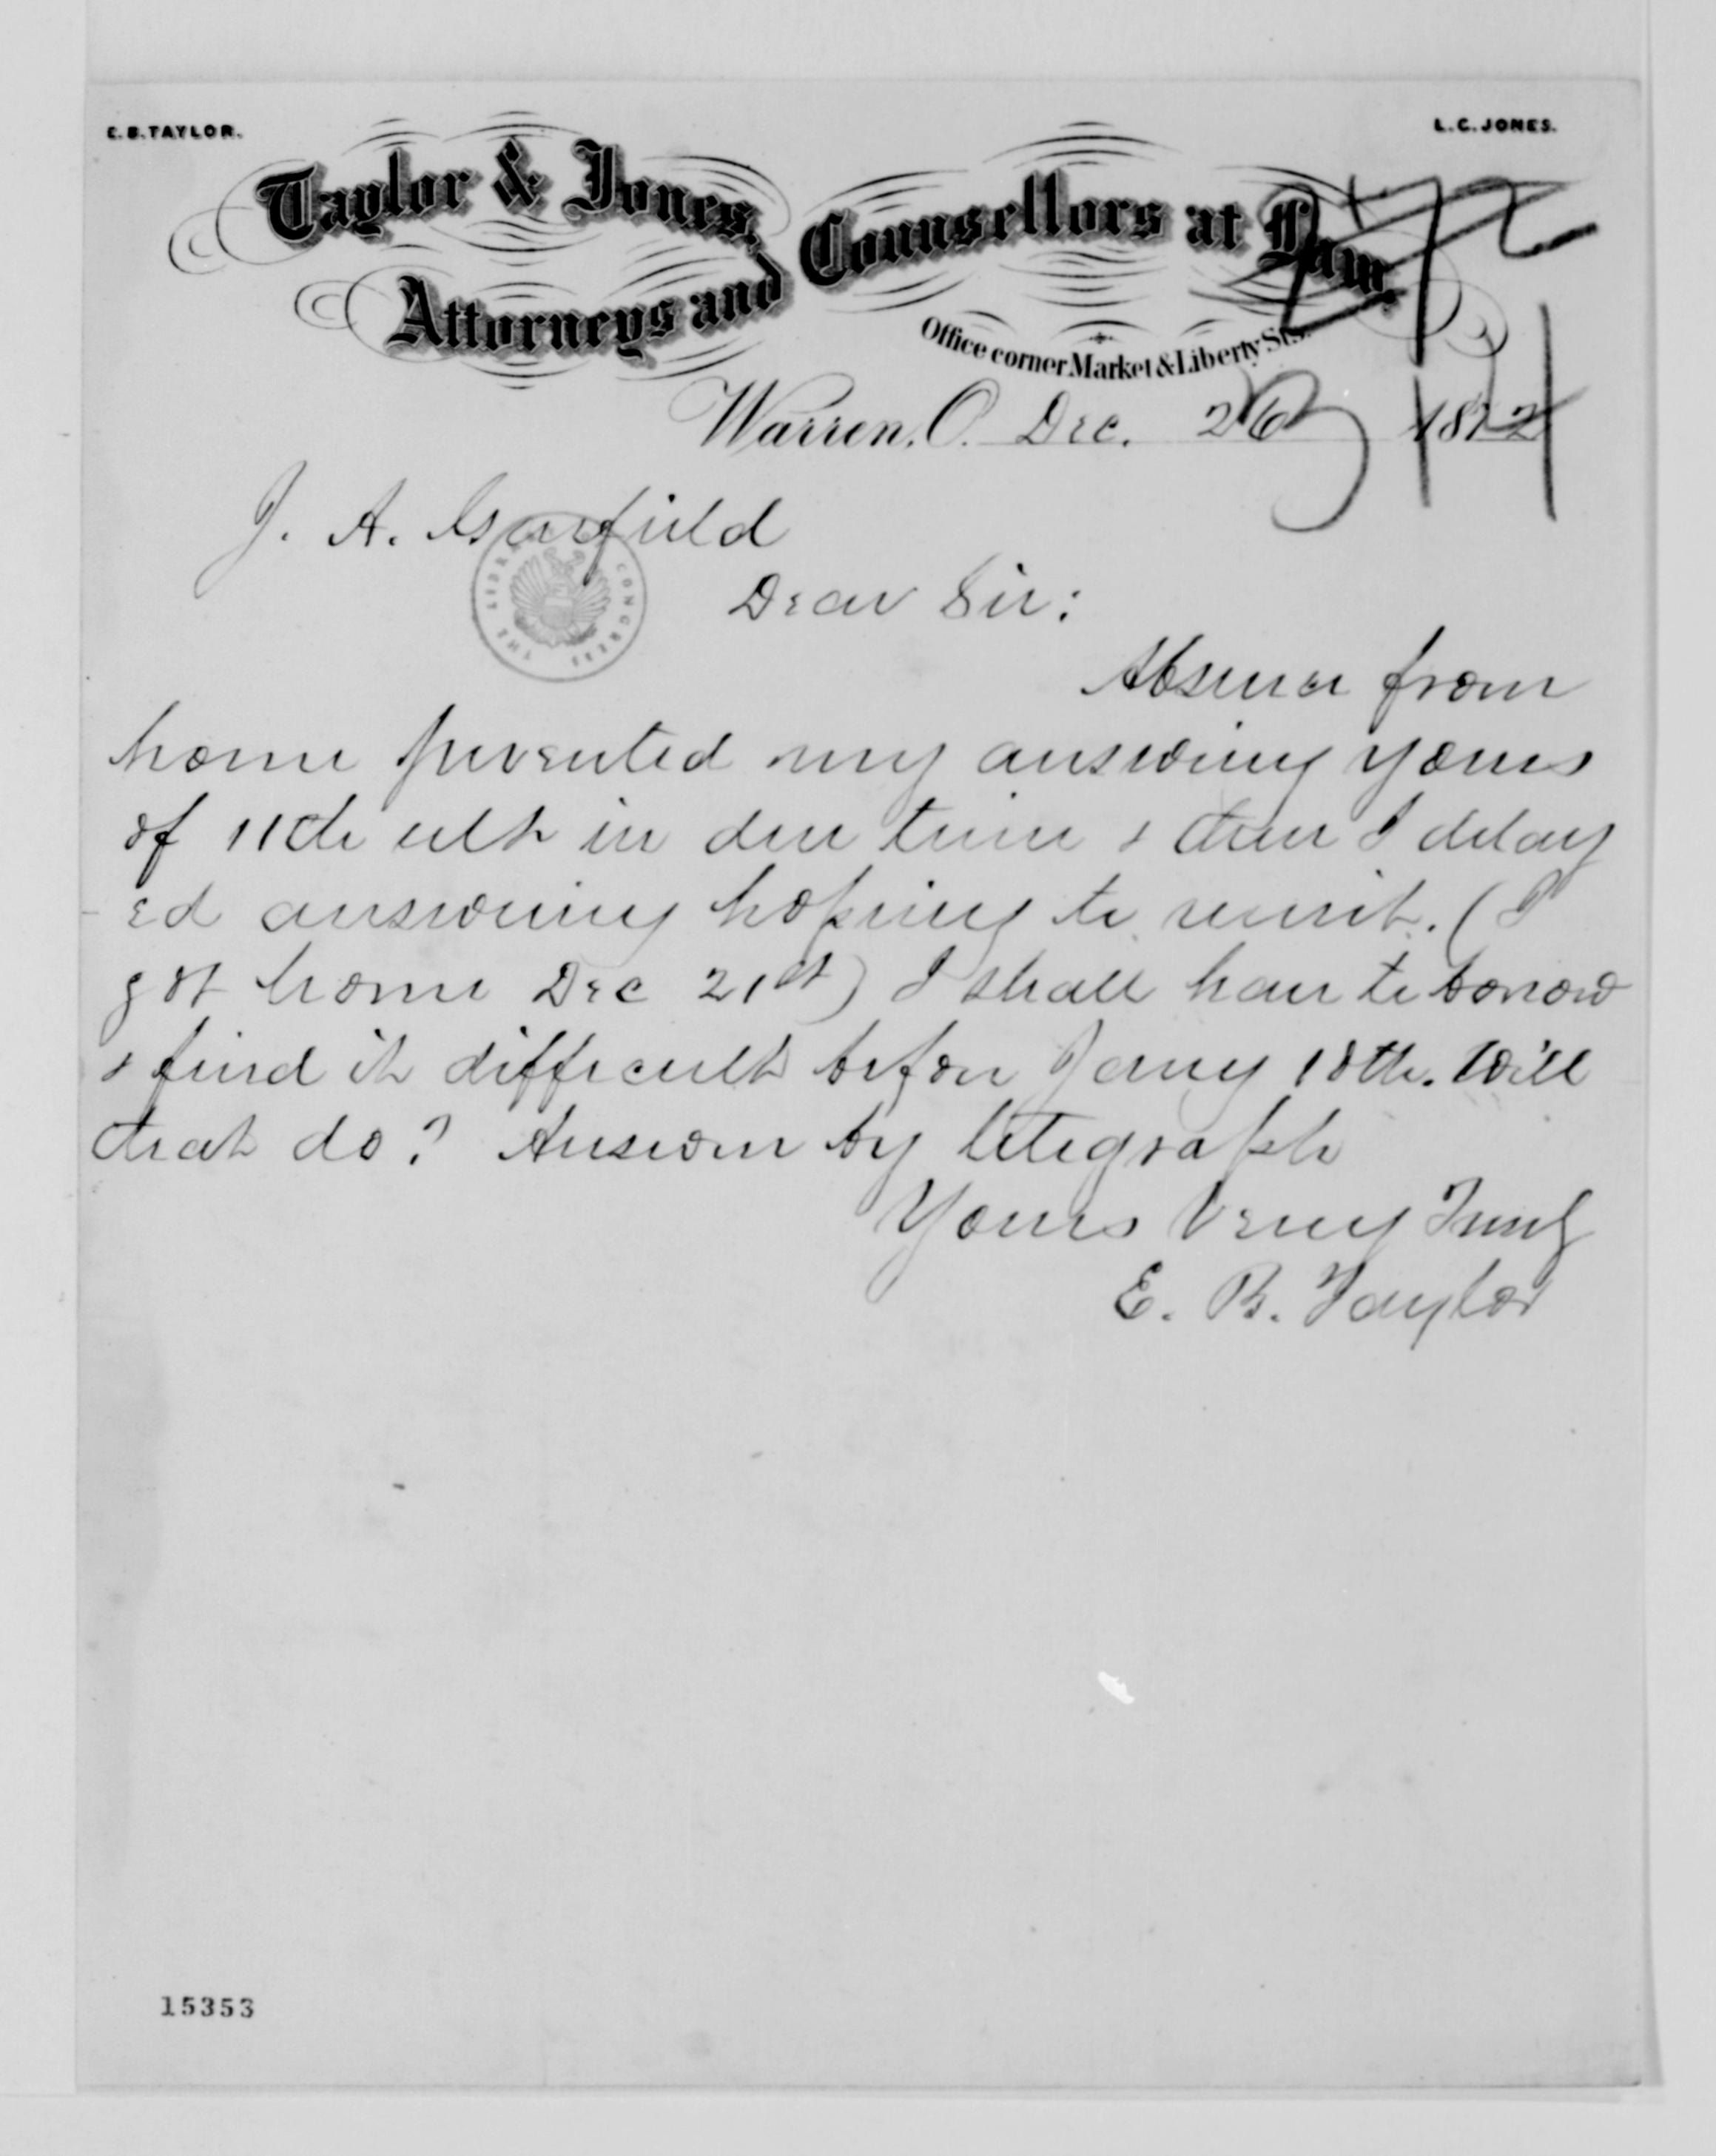 E. B. TAYLOR. L. C. JONES.
Taylor & Jones,
Attorneys and Counsellors at Law.
Office corner Market & Liberty Sts.
Warren, O. Dec. 26 1872
J. A. Garfield
THE LIBRARY CONGRESS
Dear Sir:
Absence from
home prevented my answering yours
of 11th ult in due time & then I delay
ed answering hoping to remit. (I
got home Dec 21st) I shall have to borrow
& find it difficult before Jany 18th. Will
that do? Answer by telegraph
Yours Very Truly
E. B. Taylor
15353